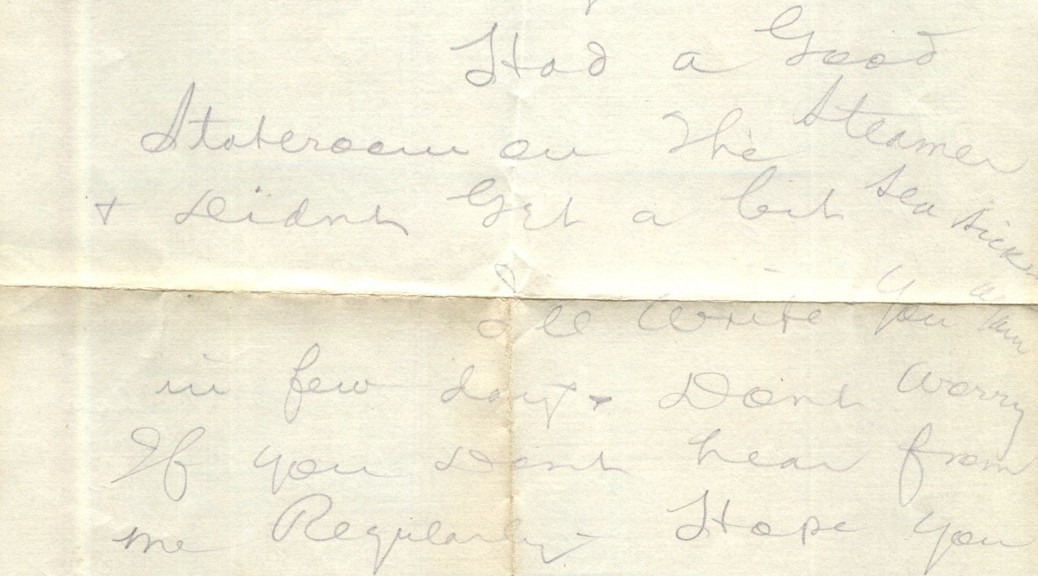 Had a Good
Stateroom on The Steamer
+ Didnt Get a bit Sea Sick
Ill Write You again
in few days + Dont Worry
If you Dont hear from
me Regularly - Hope you